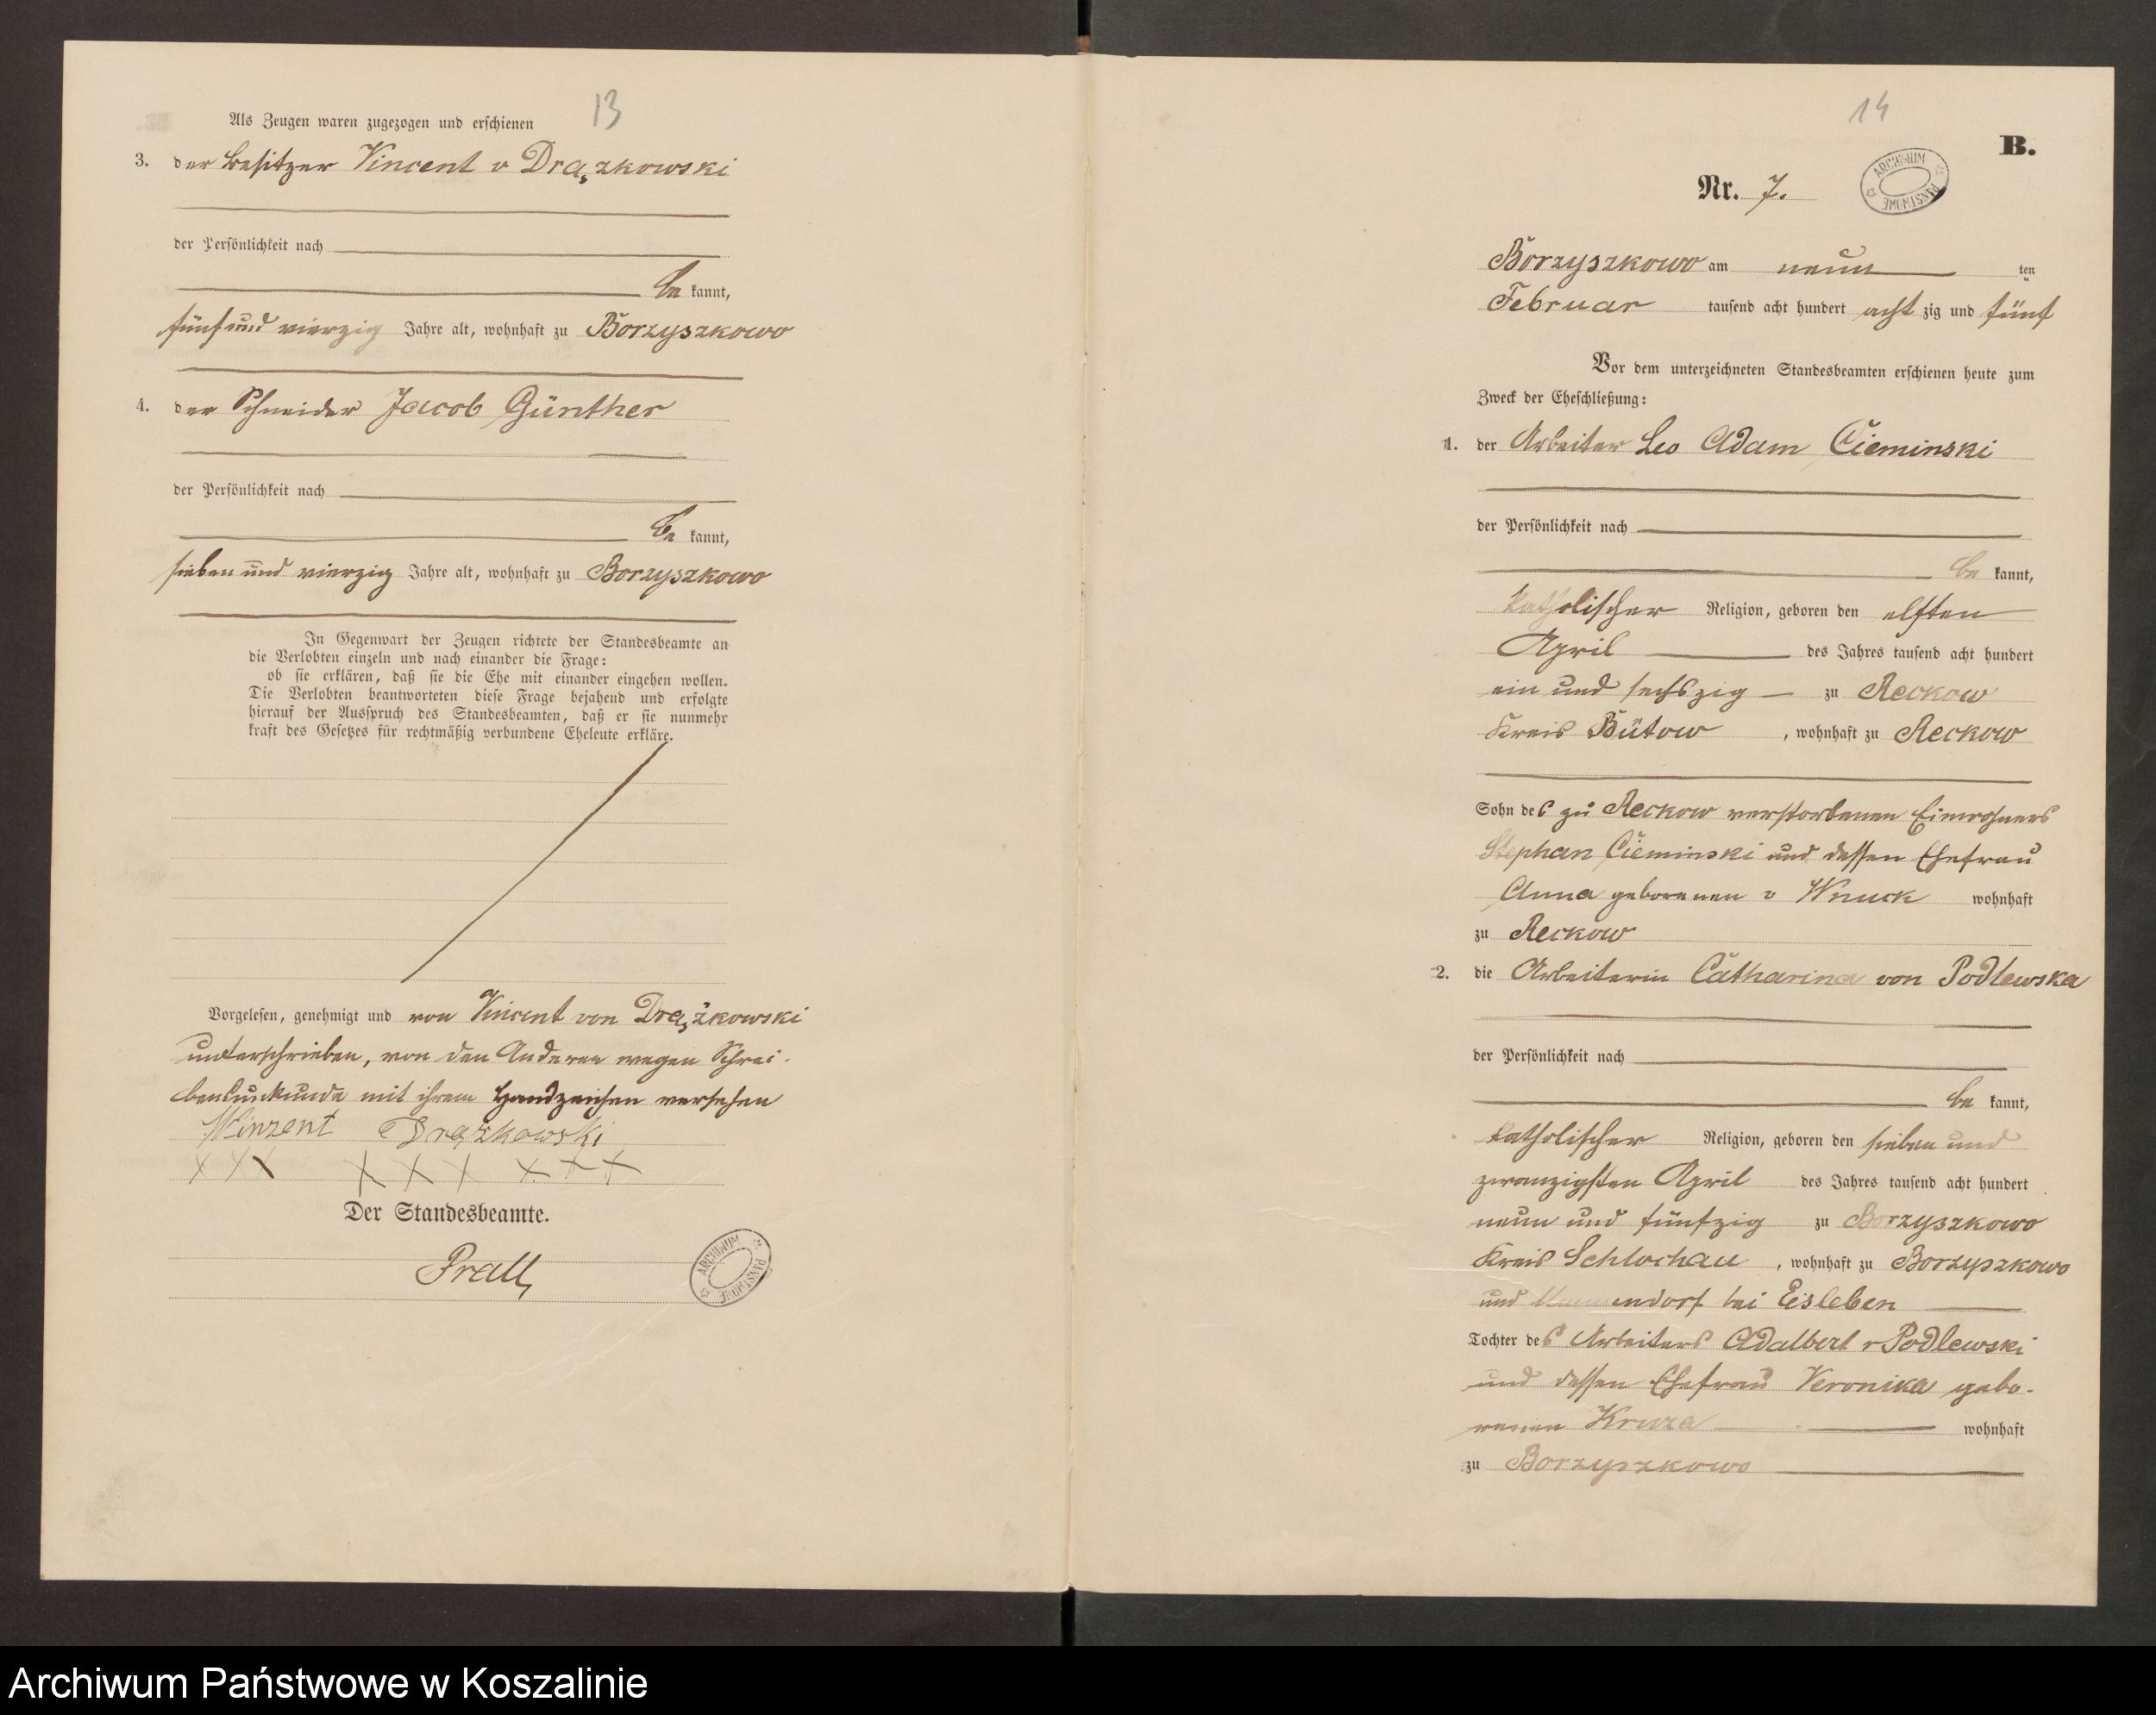 13
Als Zeugen waren zugezogen und erschienen
3. der Besitzer Vincent v Drążkowski
der Persönlichkeit nach
be kannt,
fünf und vierzig Jahre alt, wohnhaft zu Borzyszkowo
4. der Schneider Jacob Günther
der Persönlichkeit nach
be kannt,
sieben und vierzig Jahre alt, wohnhaft zu Borzyszkowo
In Gegenwart der Zeugen richtete der Standesbeamte an
die Verlobten einzeln und nach einander die Frage:
ob sie erklären, daß sie die Ehe mit einander eingehen wollen.
Die Verlobten beantworteten diese Frage bejahend und erfolgte
hierauf der Ausspruch des Standesbeamten, daß er sie nunmehr
kraft des Gesetzes für rechtmäßig verbundene Eheleute erkläre.
Vorgelesen, genehmigt und von Vincent von Drążkowski
unterschrieben, von den Anderen wegen Schrei-
bensunkunde mit ihrem Handzeichen versehen
Winzent Drążkowski
XXX XXX XXX
Der Standesbeamte.
Prall
ARCHIWUM PAŃSTWOWE
14
B.
Nr. 7.
ARCHIWUM PAŃSTWOWE
Borzyszkowo am neun ten
Februar tausend acht hundert acht zig und fünf
Vor dem unterzeichneten Standesbeamten erschienen heute zum
Zweck der Eheschließung:
1. der Arbeiter Leo Adam Cieminski
der Persönlichkeit nach
be kannt,
katholischer Religion, geboren den elften
April des Jahres tausend acht hundert
ein und sechszig zu Reckow
Kreis Bütow , wohnhaft zu Reckow
Sohn des zu Reckow verstorbenen Einwohners
Stephan Cieminski und dessen Ehefrau
Anna geborenen v Wnuck wohnhaft
zu Reckow
2. die Arbeiterin Catharina von Podlewska
der Persönlichkeit nach
be kannt,
katholischer Religion, geboren den sieben und
zwanzigsten April des Jahres tausend acht hundert
neun und fünfzig zu Borzyszkowo
Kreis Schlochau , wohnhaft zu Borzyszkowo
und bei Eisleben
Tochter des Arbeiters Adalbert v Podlewski
und dessen Ehefrau Veronika gebo-
renen Kruza wohnhaft
zu Borzyszkowo
Archiwum Państwowe w Koszalinie